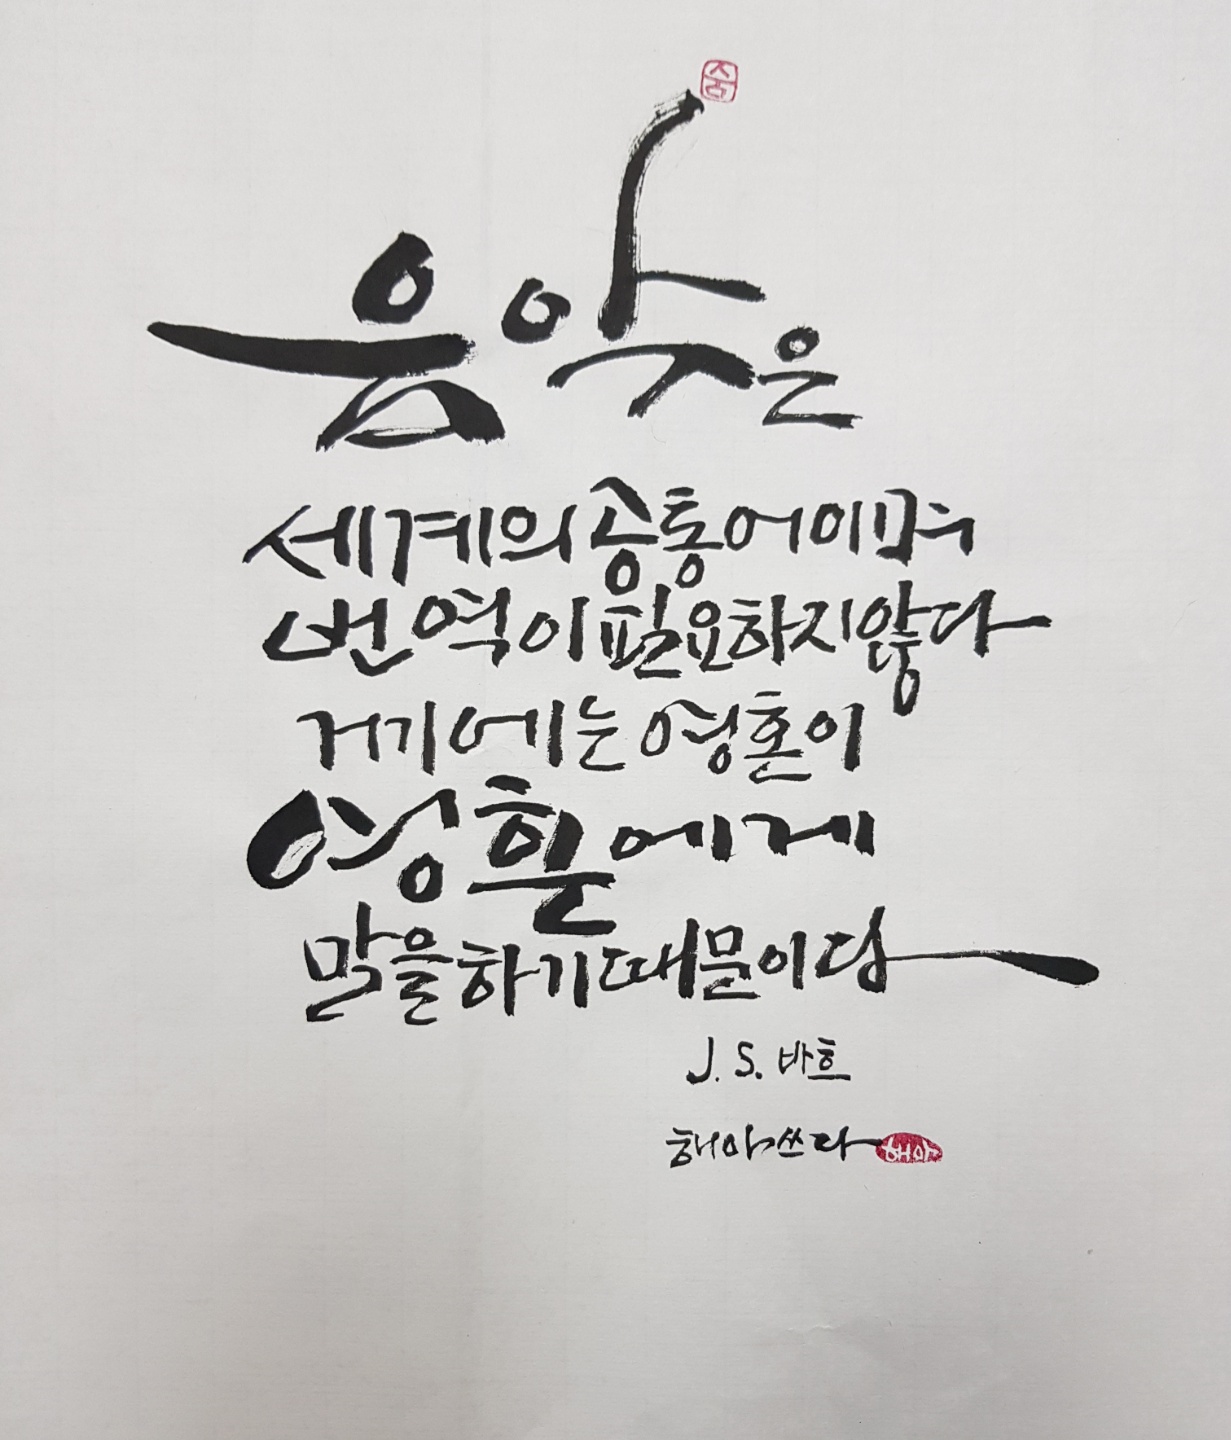 숨
음악은
세계의 공통어이며
번역이 필요하지 않다
거기에는 영혼이
영혼에게
말을 하기 때문이다
J. S. 바흐
해아 쓰다 해아